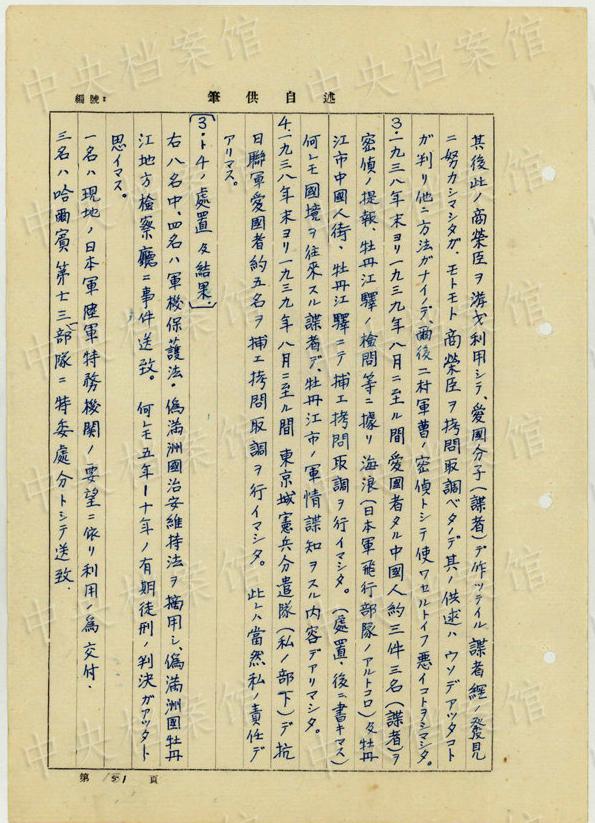 編號：
筆供自述
其後此ノ商榮臣ヲ游ガ利用シテ、愛國分子（諜者）デ作ッテイル諜者經ノ發見
ニ努力シマシタガ、モトモト商榮臣ヲ拷問取調ベタノデ其ノ供述ハウソデアッタコト
ガ判リ他ニ方法ガナイノデ、爾後二村軍曹ノ密偵トシテ使ワセルトイフ悪イコトヲシマシタ。
3. 一九三八年末ヨリ一九三九年八月ニ至ル間愛國者タル中國人約三件三名（諜者）ヲ
密偵ノ提報、牡丹江驛ノ檢問等ニ據リ海浪（日本軍飛行部隊ノアルトコロ）及牡丹
江市中國人街、牡丹江驛ニテ捕エ拷問取調ヲ行イマシタ。（處置、後ニ書キマス）
何レモ國境ヲ往來スル諜者デ、牡丹江市ノ軍情諜知ヲスル内容デアリマシタ。
4. 一九三八年末ヨリ一九三九年八月ニ至ル間東京城憲兵分遣隊（私ノ部下）デ抗
日聯軍愛國者約五名ヲ捕エ拷問取調ヲ行イマシタ。此レハ當然私ノ責任デ
アリマス。
〔3.ト4.ノ處置及結果〕
右八名中、四名ハ軍機保護法・偽滿洲國治安維持法ヲ摘用シ、偽滿洲國牡丹
江地方檢察廳ニ事件送致。何レモ五年ー十年ノ有期徒刑ノ判決ガアッタト
思イマス。
一名ハ現地ノ日本軍陸軍特務機関ノ要望ニ依リ利用ノ為交付．
三名ハ哈爾賓第七三一部隊ニ特委處分トシテ送致．
第 頁
中央档案馆